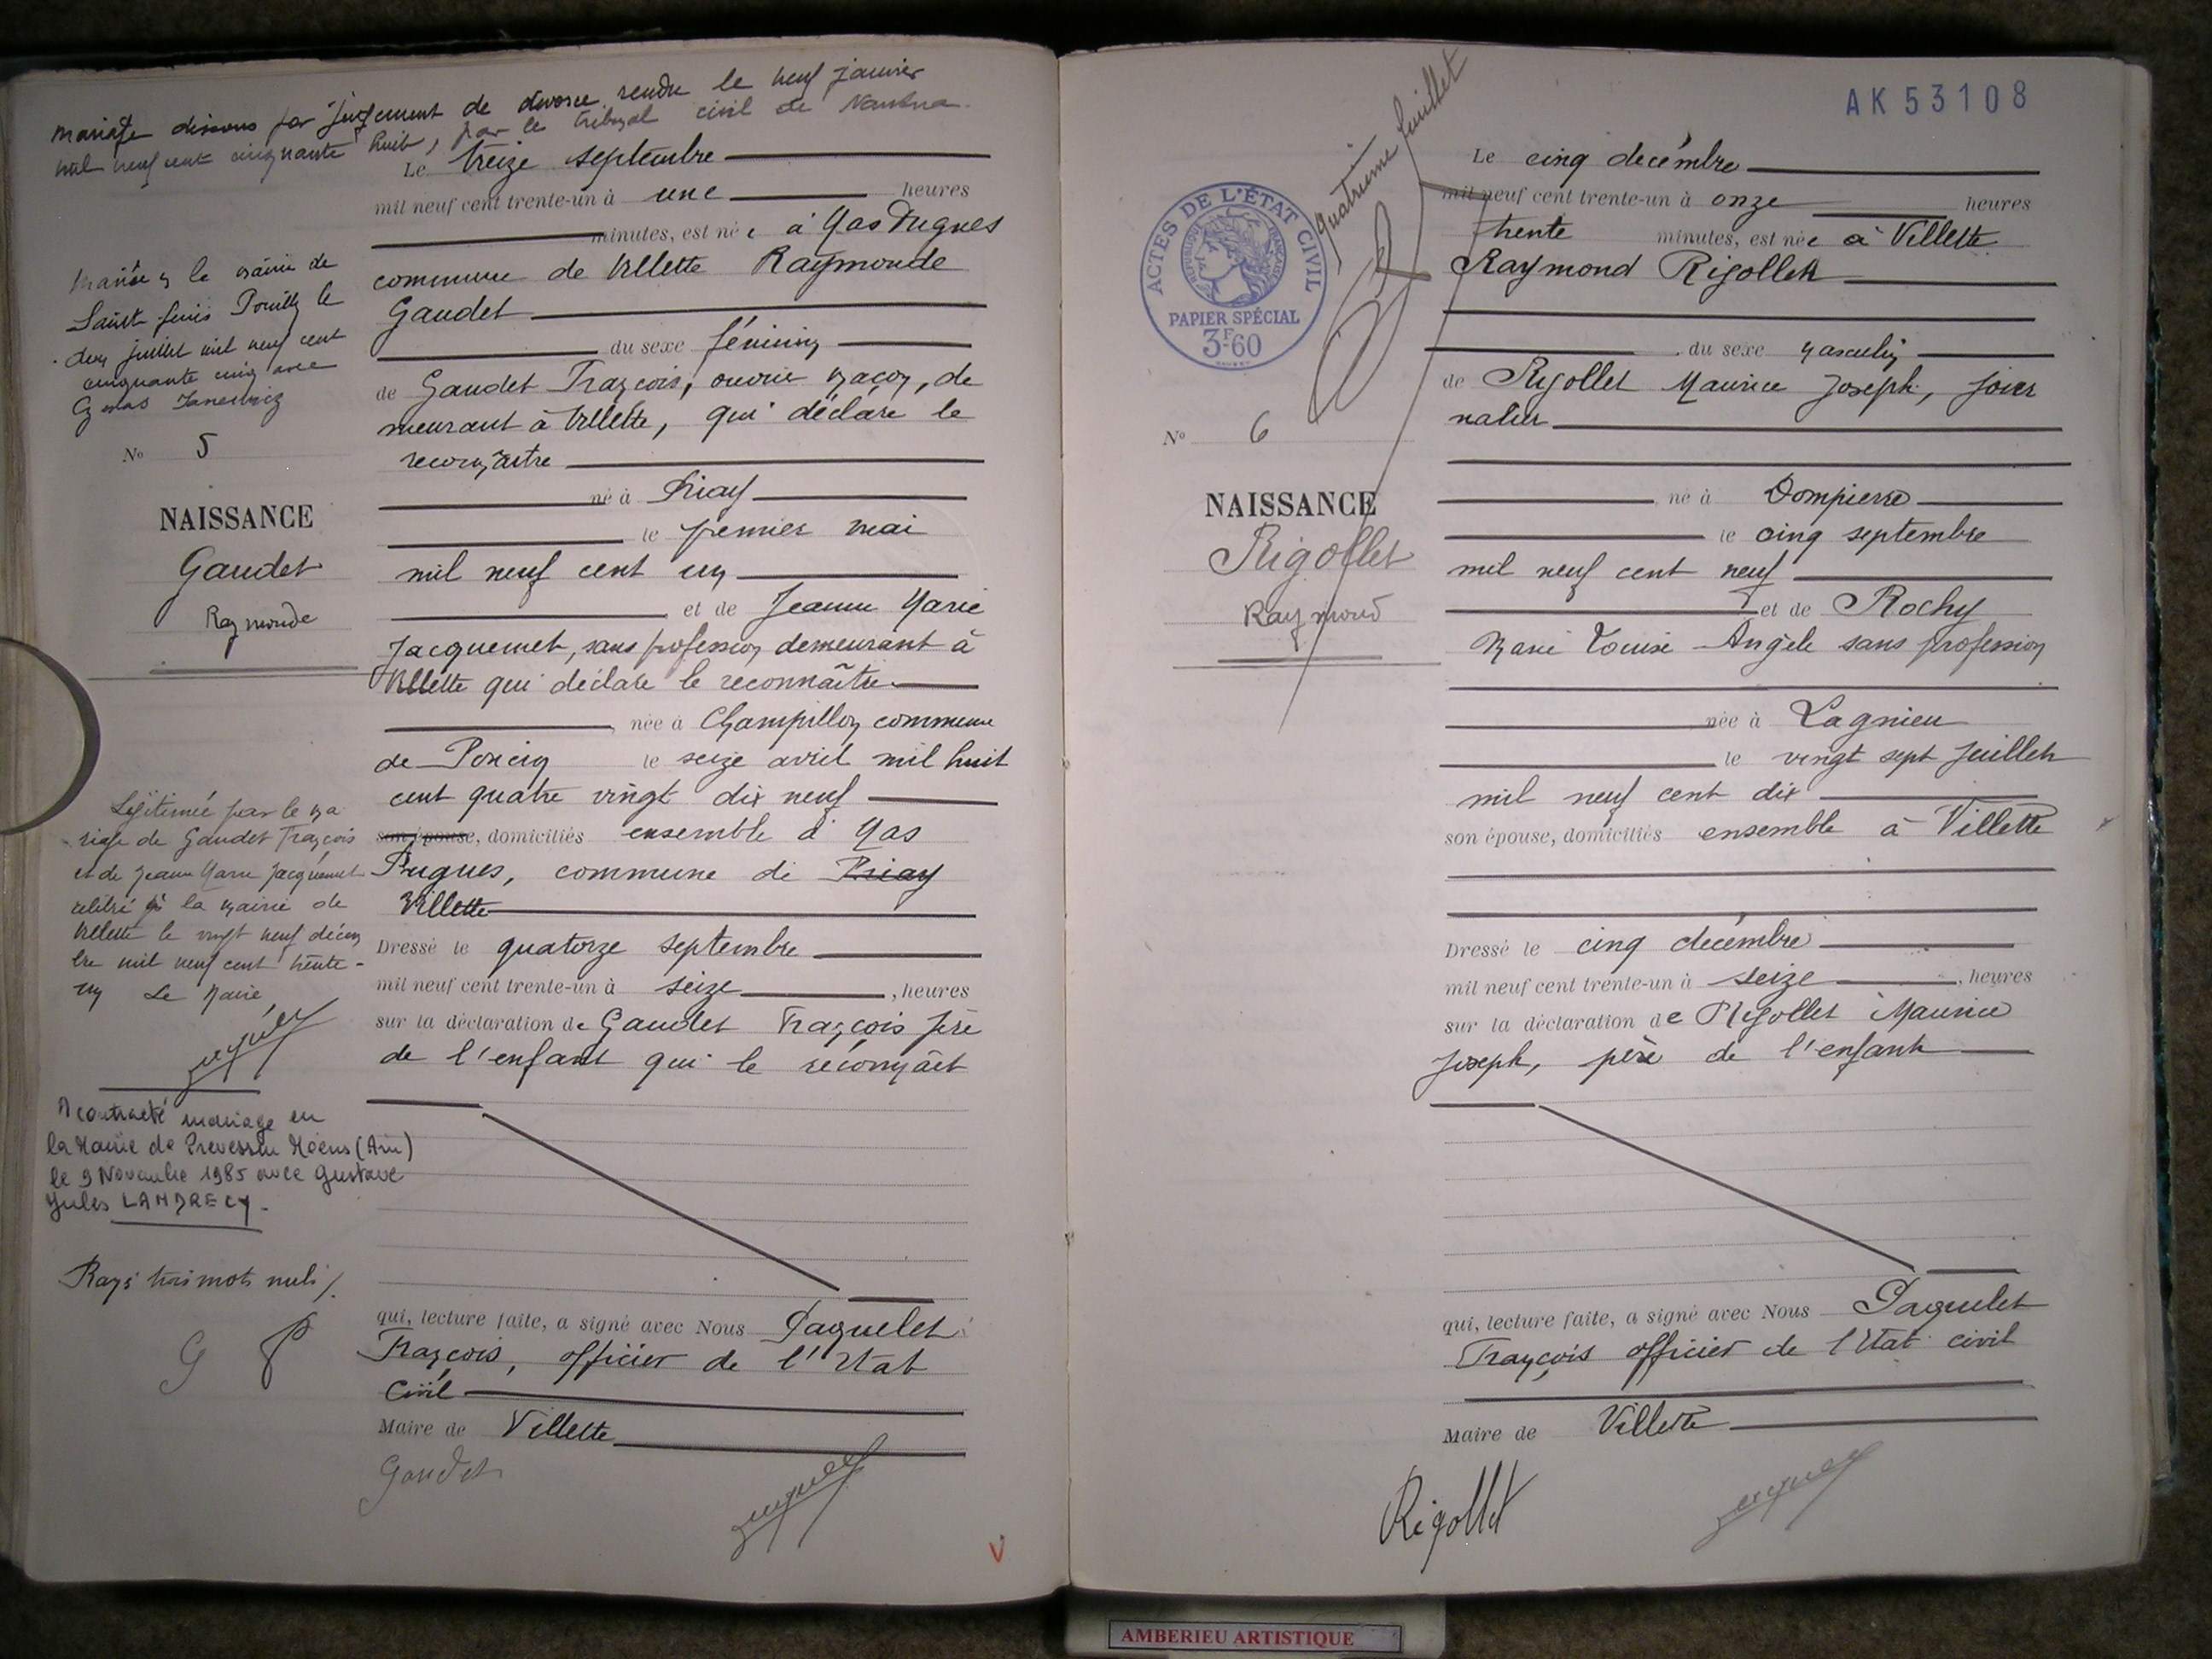 Mariage dissous par jugement de divorce rendu le neuf janvier
mil neuf cent cinquante huit, par le tribunal civil de Nantua
Le treize septembre
mil neuf cent trente-un à une heures
minutes, est née à Mas Pugues
commune de Villette Raymonde
Gaudet
du sexe féminin
de Gaudet François, ouvrier maçon, de
meurant à Villette, qui déclare le
reconnaître
né à Priay
le premier mai
mil neuf cent un
et de Jeanne Marie
Jacquemet, sans profession demeurant à
Villette qui déclare le reconnaître
née à Champillon commune
de Poncin le seize avril mil huit
cent quatre vingt dix neuf
son épouse, domiciliés ensemble à Mas
Pugues, commune de Priay
Villette
Dressé le quatorze septembre
mil neuf cent trente-un à seize, heures
sur la déclaration de Gaudet François père
de l'enfant qui le reconnaît
qui, lecture faite, a signé avec Nous Paquelet
François, officier de l'Etat
Civil
Maire de Villette
Gaudet
V
Mariée à la mairie de
Saint Genis Pouilly le
deux juillet mil neuf cent
cinquante cinq avec
No 5
NAISSANCE
Gaudet
Raymonde
Légitimée par le ma
riage de Gaudet François
et de Jeanne Marie Jacquemet
célébré à la mairie de
Villette le vingt neuf décem
bre mil neuf cent trente-
un Le Maire,
A contracté mariage en
la Mairie de Prevessin Moëns (Ain)
le 9 Novembre 1985 avec Gustave
Jules LANDRECY.
Rayé trois mots nuls /.
G P
AK 53108
Quatrième feuillet
ACTES DE L'ÉTAT CIVIL
RÉPUBLIQUE FRANÇAISE
PAPIER SPÉCIAL
3F.60
Le cinq decémbre
mil neuf cent trente-un à onze heures
trente minutes, est née à Villette
Raymond Rigollet
du sexe masculin
de Rigollet Maurice Joseph, jour
nalier
né à Dompierre
le cinq septembre
mil neuf cent neuf
et de Rochy
Marie Louise Angèle sans profession
née à Lagnieu
le vingt sept Juillet
mil neuf cent dix
son épouse, domiciliés ensemble à Villette
Dressé le cinq decémbre
mil neuf cent trente-un à seize, heures
sur la déclaration de Rigollet Maurice
Joseph, père de l'enfant
qui, lecture faite, a signé avec Nous Paquelet
François officier de l'Etat civil
Maire de Villette
Rigollet
No 6
NAISSANCE
Rigollet
Raymond
AMBERIEU ARTISTIQUE